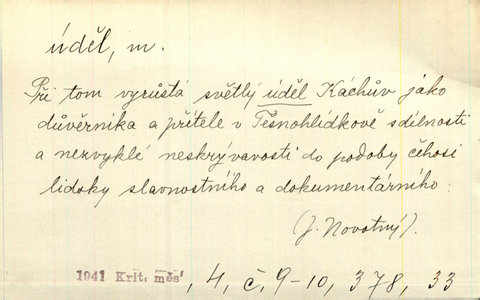 úděl, m.
Při tom vyrůstá světlý úděl Káchův jako
důvěrníka a přítele v Těsnohlídkově sdílnosti
a nezvyklé neskrývavosti do podoby čehosi
lidsky slavnostního a dokumentárního.
(J. Novotný).
1941 Krit. měs , 4, č. 9-10, 378, 33